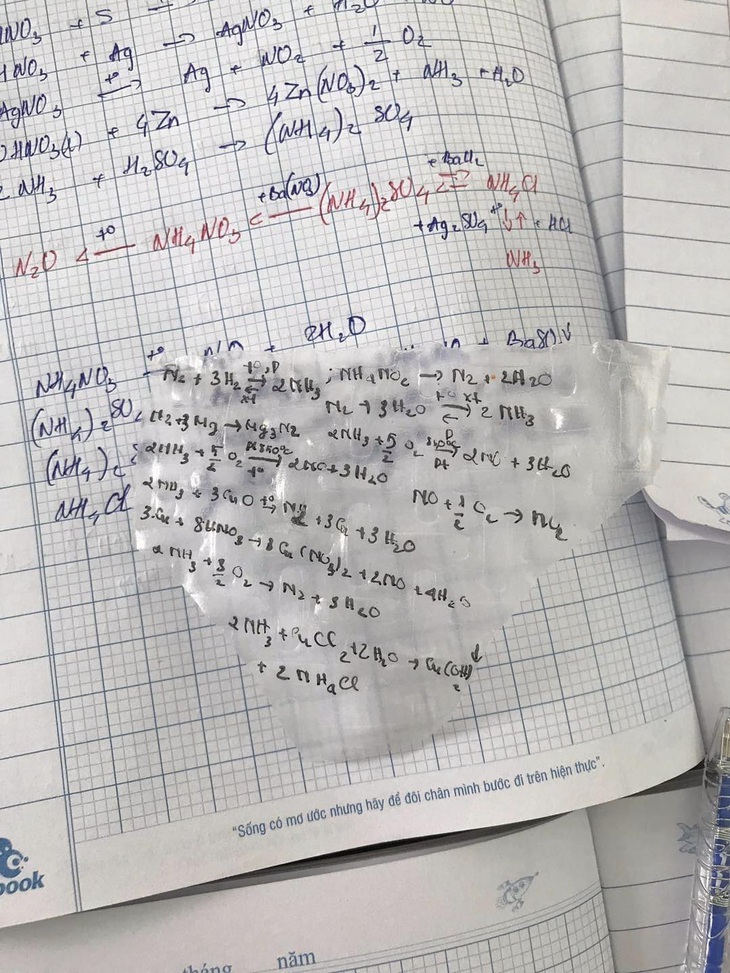 HNO₃ + S
HNO₃ + Ag → AgNO₃ + H₂O
AgNO₃ →(t°) Ag + NO₂ + 1/2 O₂
HNO₃(l) + 4Zn → 4Zn(NO₃)₂ + NH₃ + H₂O
2NH₃ + H₂SO₄ → (NH₄)₂SO₄
N₂O ←(t°) NH₄NO₃ ←(+Ba(NO₃)) (NH₄)₂SO₄ ⇌(+BaCl₂) NH₄Cl
+Ag₂SO₄ t° ↓↑ + HCl
NH₃
NH₄NO₃ t° + 2H₂O
(NH₄)₂SO₄ + BaSO₄↓
(NH₄)₂
NH₄Cl
N₂ + 3H₂ ⇌(t°, P, xt) 2NH₃ ; NH₄NO₂ → N₂ + 2H₂O
N₂ + 3H₂O ⇌(t° xt) 2NH₃
N₂ + 3Mg → Mg₃N₂ 2NH₃ + 5/2 O₂ →(P, Pt) 2NO + 3H₂O
2NH₃ + 5/2 O₂ →(Pt 850°C, t°) 2NO + 3H₂O
2NH₃ + 3CuO →(t°) N₂ + 3Cu + 3H₂O NO + 1/2 O₂ → NO₂
3Cu + 8HNO₃ → 3Cu(NO₃)₂ + 2NO + 4H₂O
2NH₃ + 3/2 O₂ → N₂ + 3H₂O
2NH₃ + CuCl₂ + 2H₂O → Cu(OH)₂↓
+ 2NH₄Cl
"Sống có mơ ước nhưng hãy để đôi chân mình bước đi trên hiện thực".
book
tháng năm